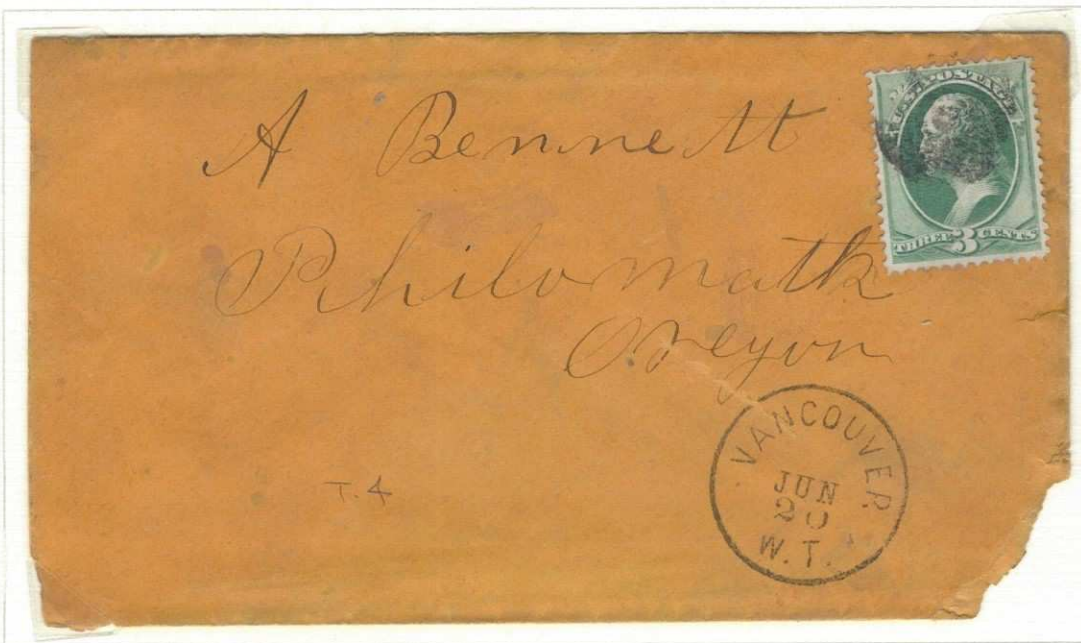 U.S. POSTAGE
THREE 3 CENTS
A Bennett
Philomath
Oregon
VANCOUVER
JUN
20
W.T.
T. 4